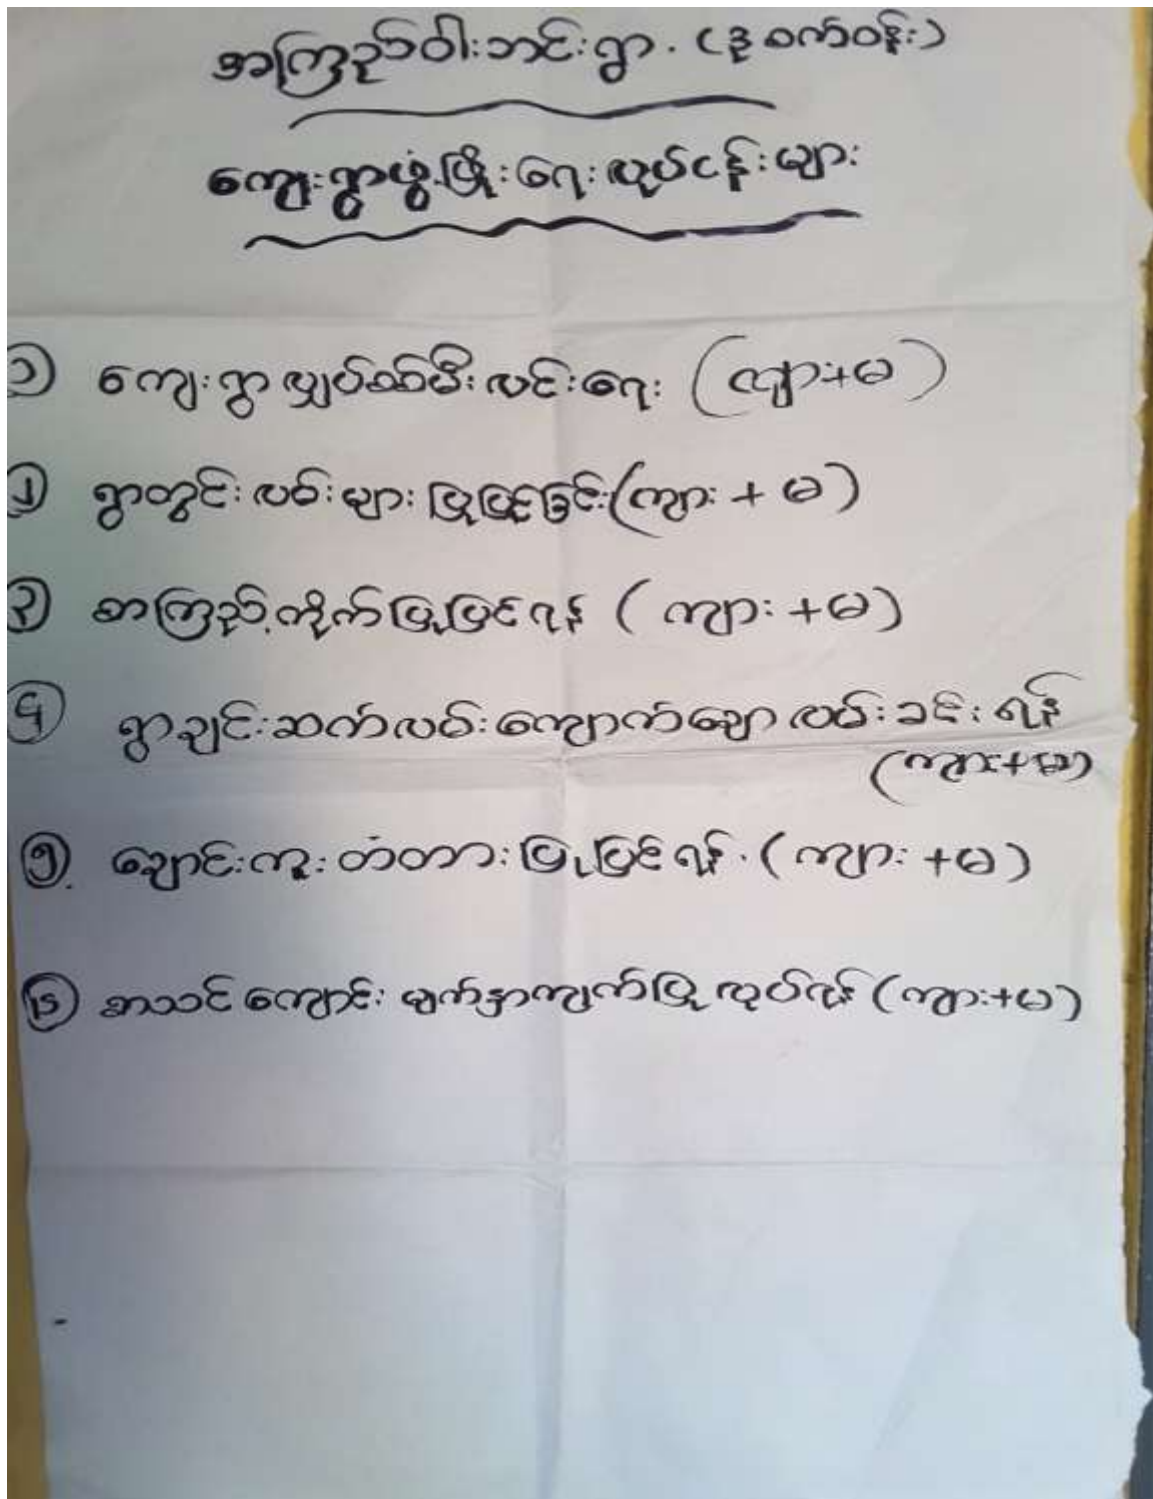 အကြည်ဝါးဘင်းရွာ. (ဒု စက်ဝန်း)
ကျေးရွာဖွံ့ဖြိုးရေးလုပ်ငန်းများ
၁ ကျေးရွာ လျှပ်စစ်မီးလင်းရေး (ကျား+မ)
၂ ရွာတွင်းလမ်းများ ပြုပြင်ခြင်း (ကျား + မ)
၃ စာကြည့်တိုက်ပြုပြင်ရန် (ကျား +မ)
၄ ရွာချင်းဆက်လမ်းကျောက်ချော လမ်းခင်းရန်
(ကျား+မ)
၅. ချောင်းကူးတံတားပြုပြင်ရန်. (ကျား +မ)
၆ စာသင်ကျောင်း မျက်နှာကျက်ပြုလုပ်ရန် (ကျား+မ)